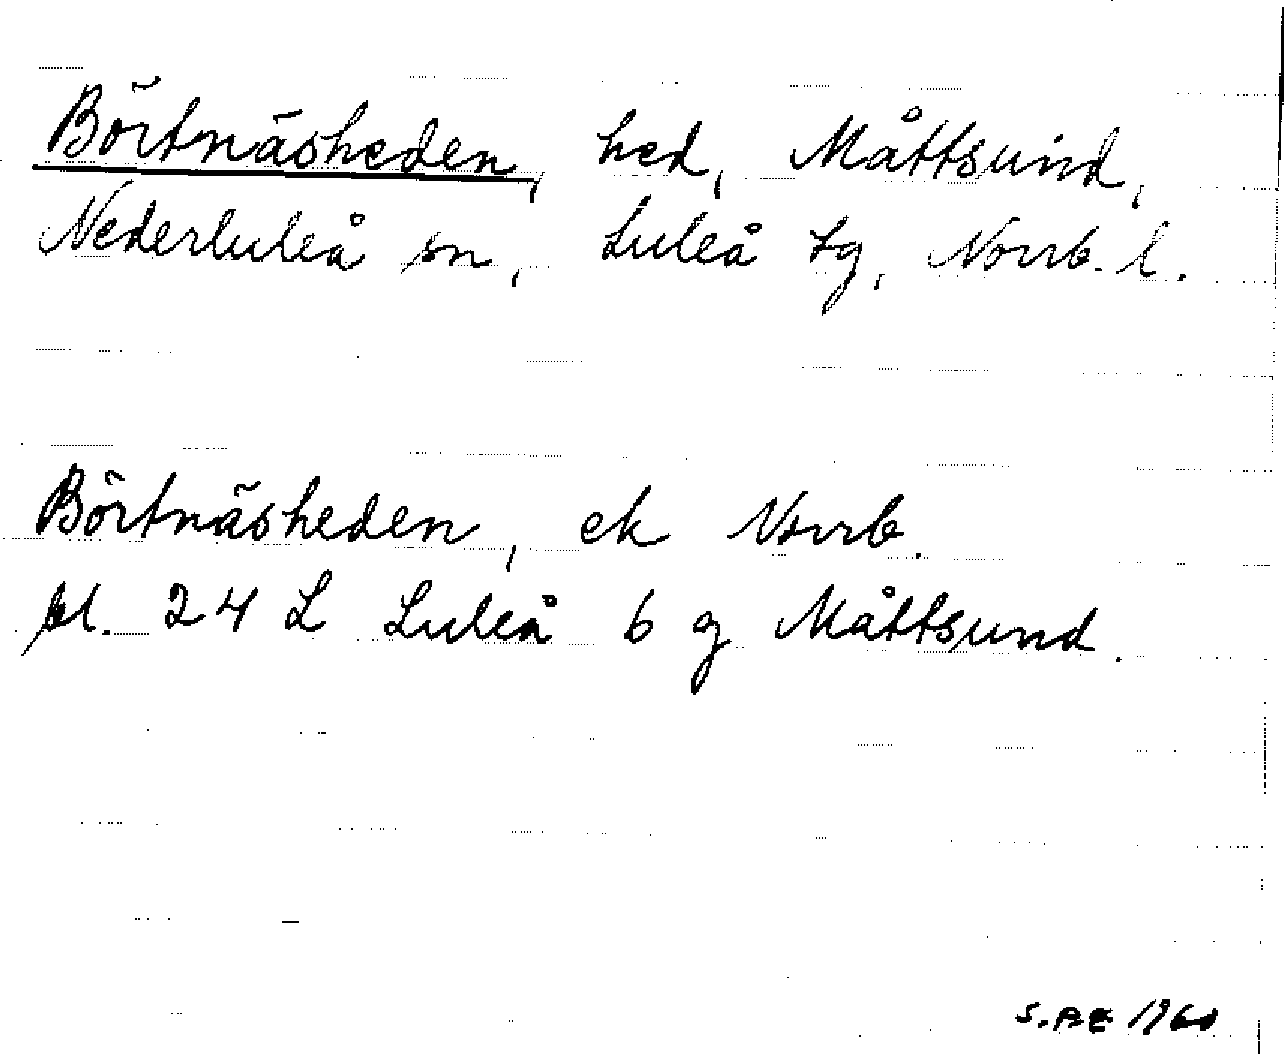 Börtnäsheden, hed, Måttsund,
Nederluleå sn, Luleå tg, Norrb. l.
Börtnäsheden, ek Norrb.
bl. 24 L Luleå 6 g Måttsund.
1960